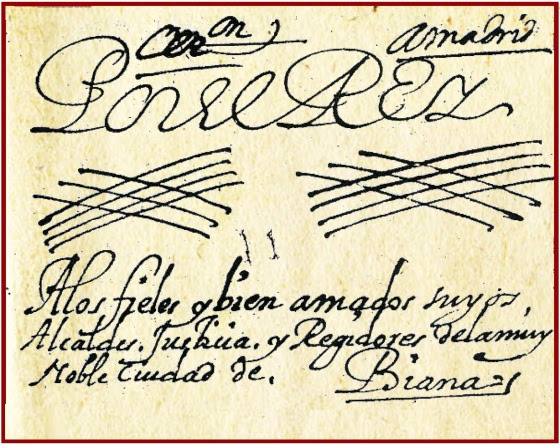 amadrid
POR EL REY
Alos fieles y bien amados suyos,
Alcaldes. Justicia. y Regidores delamuy
Noble Ciudad de. Biana